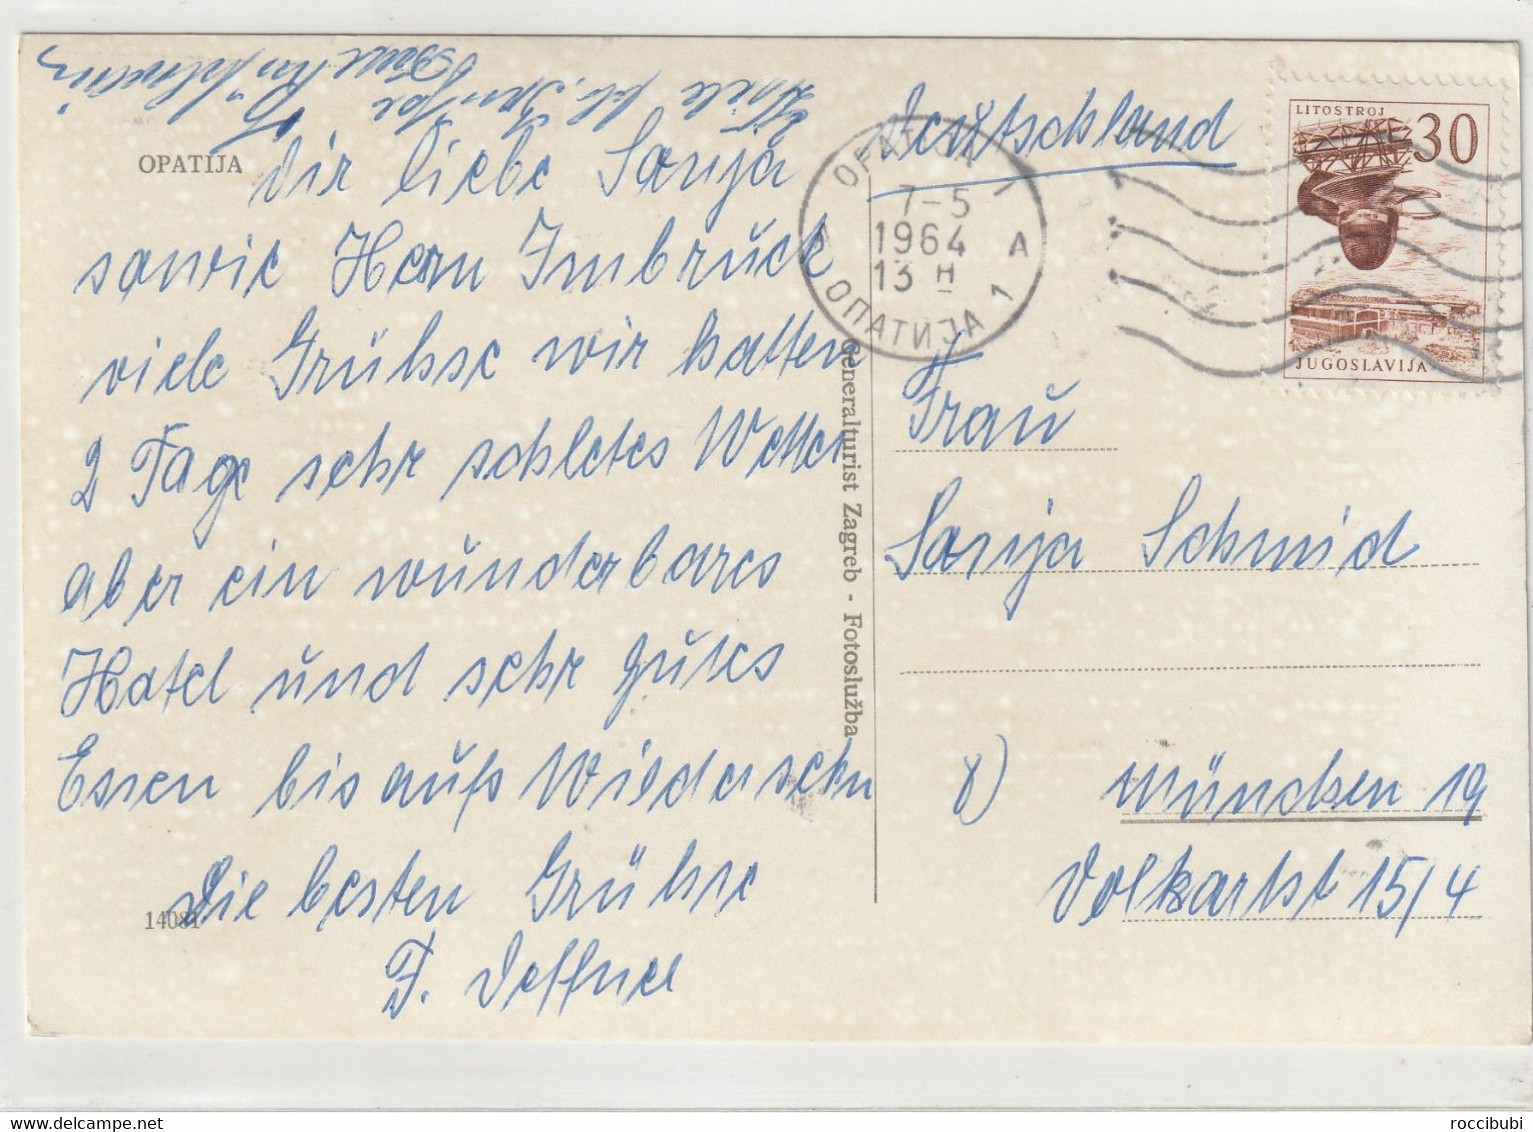 OPATIJA
Dir liebe Sonja
sowie Herrn Imbruck
viele Grühse wir hatten
2 Tage sehr schletes Wetter
aber ein wunderbares
Hotel und sehr gutes
Essen bis aufs Wiedersehn
Die besten Grühse
14081
Generalturist Zagreb - Fotoslužba
Deutschland
OPATIJA 1
7-5
1964
13 H
A
ОПАТИЈА 1
LITOSTROJ
30
JUGOSLAVIJA
Frau
Sonja Schmid
8) München 19
Volkartst 15/4
www.delcampe.net
roccibubi